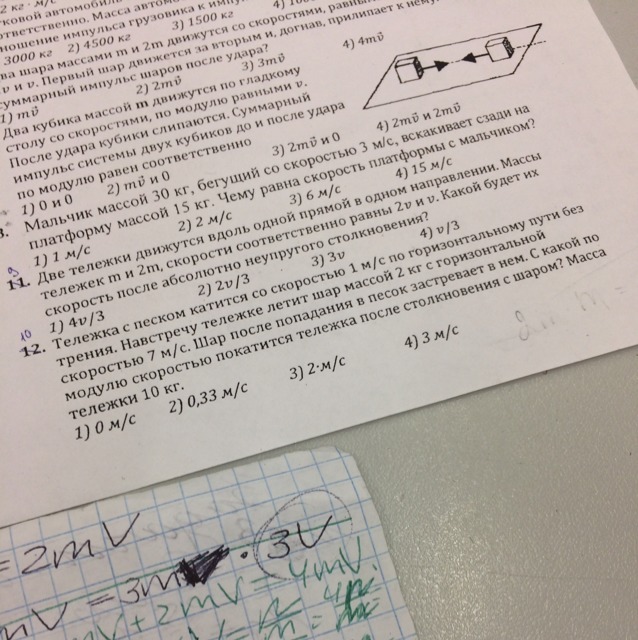 ственно. Масса автомо
ношение импульса грузовика к имп
3000 кг 2) 4500 кг 3) 1500 кг
ва шара массами m и 2m движутся со скоростями, равны
v и v. Первый шар движется за вторым и, догнав, прилипает к нему.
суммарный импульс шаров после удара?
1) mv⃗ 2) 2mv⃗ 3) 3mv⃗ 4) 4mv⃗
Два кубика массой m движутся по гладкому
столу со скоростями, по модулю равными v.
После удара кубики слипаются. Суммарный
импульс системы двух кубиков до и после удара
по модулю равен соответственно
1) 0 и 0 2) mv⃗ и 0 3) 2mv⃗ и 0 4) 2mv⃗ и 2mv⃗
Мальчик массой 30 кг, бегущий со скоростью 3 м/с, вскакивает сзади на
платформу массой 15 кг. Чему равна скорость платформы с мальчиком?
1) 1 м/с 2) 2 м/с 3) 6 м/с 4) 15 м/с
9
11. Две тележки движутся вдоль одной прямой в одном направлении. Массы
тележек m и 2m, скорости соответственно равны 2v и v. Какой будет их
скорость после абсолютно неупругого столкновения?
1) 4v/3 2) 2v/3 3) 3v 4) v/3
10
12. Тележка с песком катится со скоростью 1 м/с по горизонтальному пути без
трения. Навстречу тележке летит шар массой 2 кг с горизонтальной
скоростью 7 м/с. Шар после попадания в песок застревает в нем. С какой по
модулю скоростью покатится тележка после столкновения с шаром? Масса
тележки 10 кг.
1) 0 м/с 2) 0,33 м/с 3) 2·м/с 4) 3 м/с
= 2mV
mV = 3m · 3V
mV + 2mV = 4mV